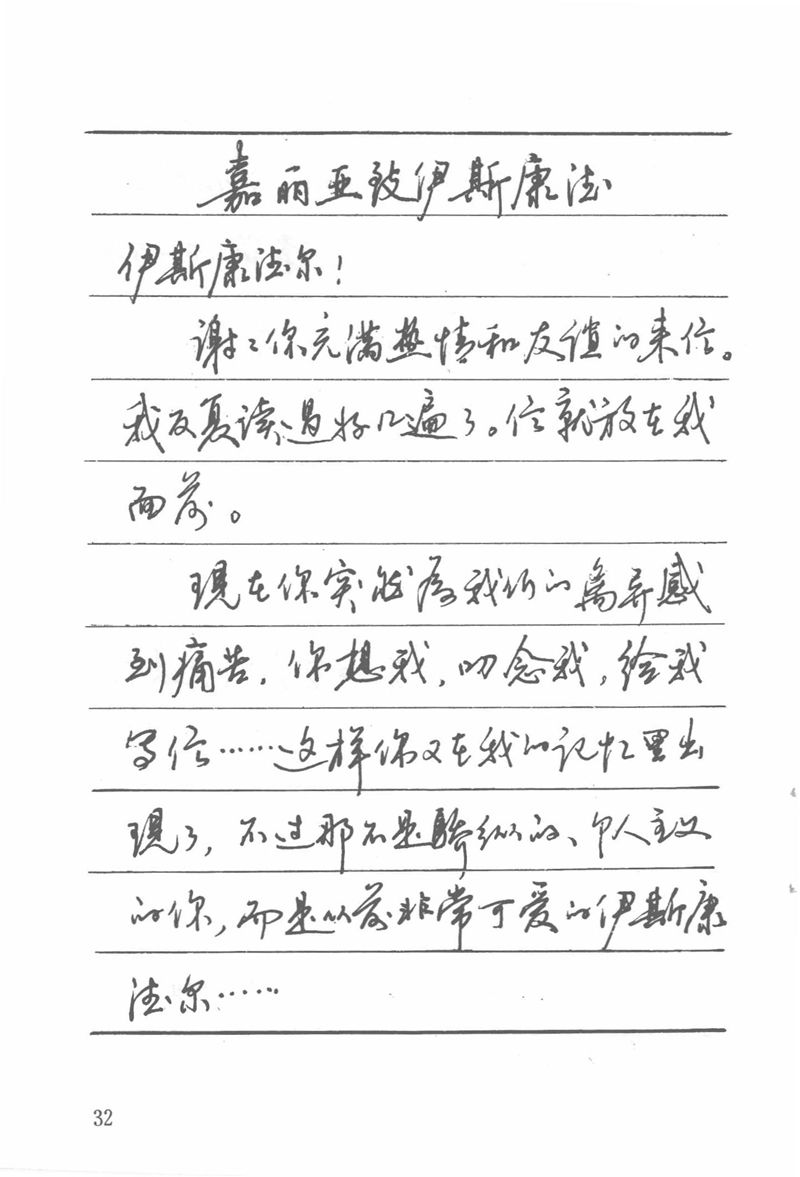 嘉丽亚致伊斯康法
伊斯康法尔！
谢谢你充满热情和友谊的来信。
我反复读过好几遍了。信就放在我
面前。
现在你突然为我们的离异感
到痛苦，你想我，叨念我，给我
写信……这样你又在我的记忆里出
现了，不过那不是骄纵的、个人主义
的你，而是以前非常可爱的伊斯康
法尔……
32